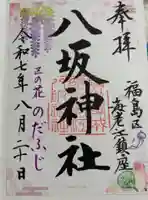 奉拝
福島区
海老江鎮座
八坂神社
区の花
のだふじ
令和七年八月二十日